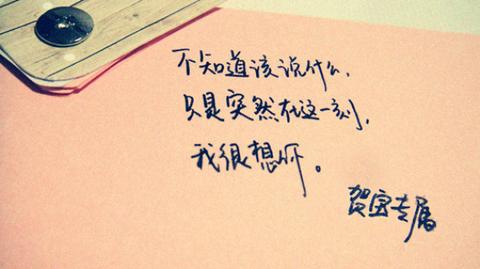 不知道该说什么，
只是突然在这一刻，
我很想你。
贺宝专属